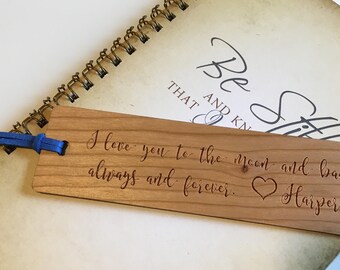 Be Still
AND KN
THAT
I love you to the moon and bac
always and forever. ♡ Harper